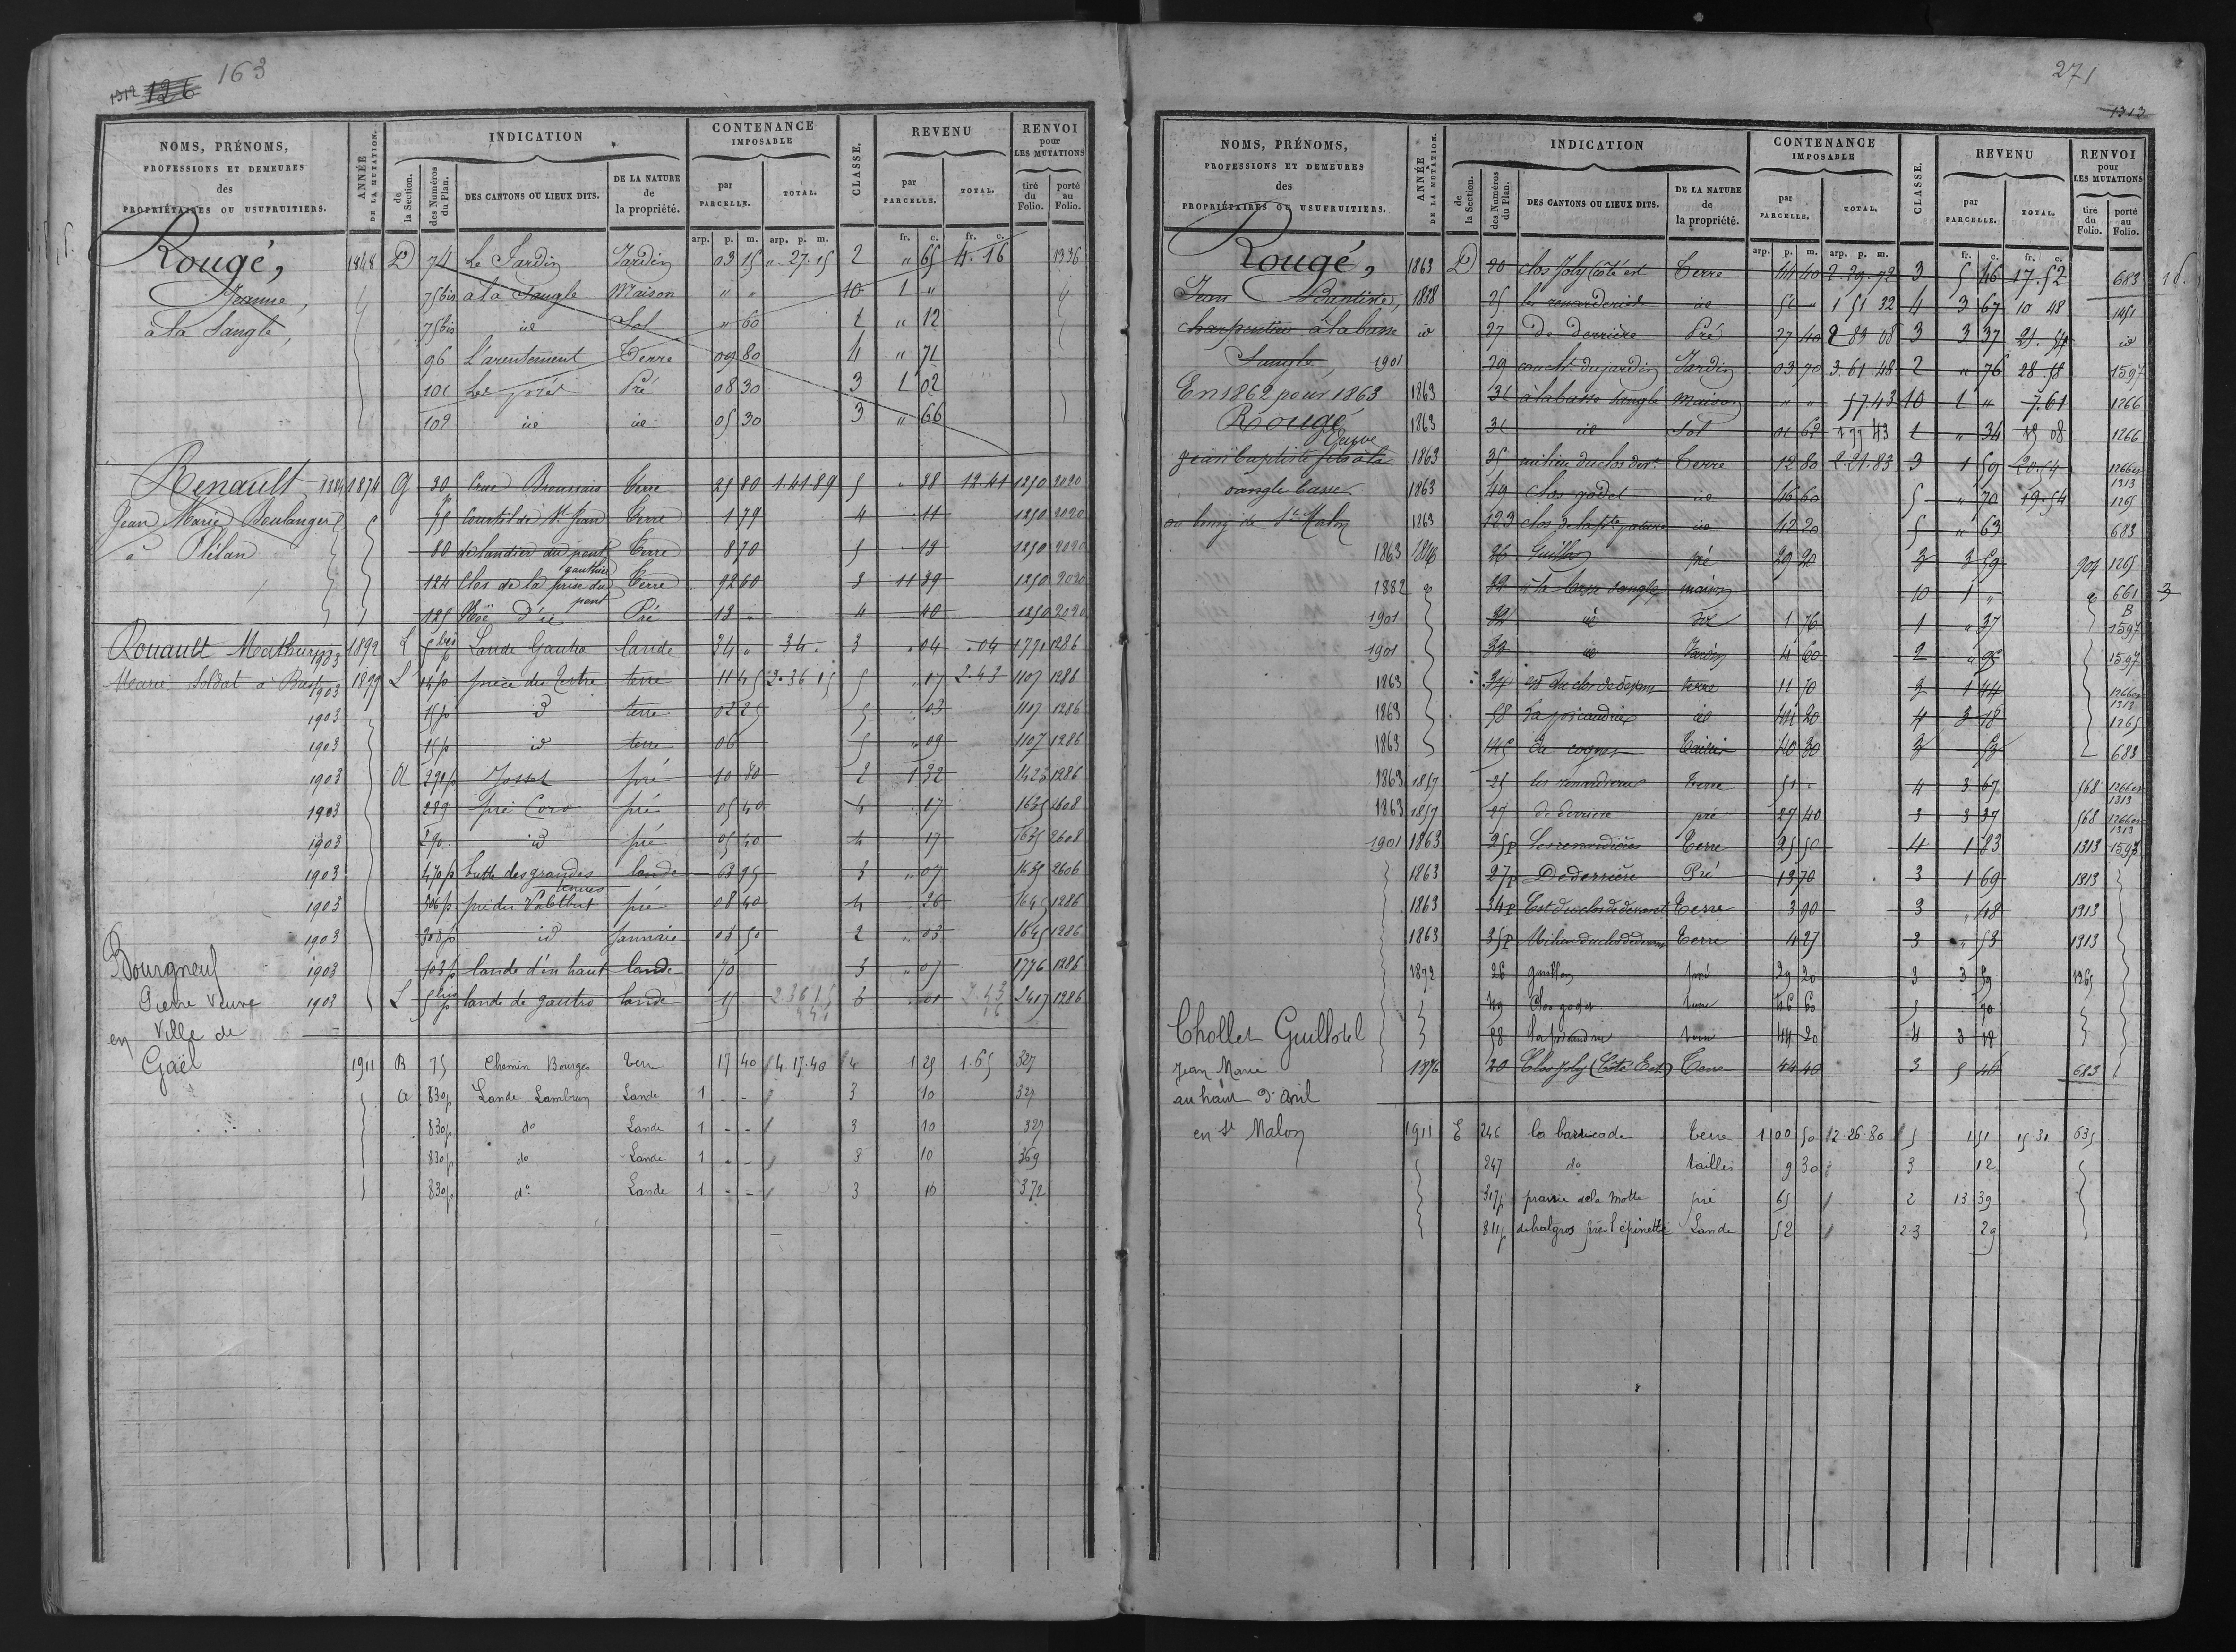 1312 126 163
NOMS, PRÉNOMS, PROFESSIONS ET DEMEURES des PROPRIÉTAIRES OU USUFRUITIERS.
ANNÉE DE LA MUTATION.
INDICATION
de la Section.
des Numéros du Plan.
DES CANTONS OU LIEUX DITS.
DE LA NATURE de la propriété.
CONTENANCE IMPOSABLE
par PARCELLE.
TOTAL.
CLASSE.
REVENU
par PARCELLE.
TOTAL.
RENVOI pour LES MUTATIONS
tiré du Folio.
porté au Folio.
arp. p. m. arp. p. m. fr. c. fr. c.
Rougé, 1848 D 74 Le Jardin Jardin 03 15 " 27.15 2 " 65 4.16 1336
Jeanne, 75bis à la Sangle Maison " " 10 1 "
à la Sangle, 75bis id Sol " 60 1 " 12
96 L'arentement Terre 09 80 4 " 71
101 Les prés Pré 08 30 3 1 02
102 id id 05 30 3 " 66
Renault 1884 1874 G 30 Terre 25 80 1.41 89 5 " 38 12.41 1250 2020
Jean Marie Boulanger 55 Courtil de St Jean Terre 1 79 4 11 1250 2020
à Plélan 80 de landier du pont gauthier Terre 8 70 5 13 1250 2020
124 Clos de la prise du pont Terre 92 60 3 11 39 1250 2020
125 Noë d'id Pré 13 " 4 40 1250 2020
Rouault Mathurin 1903 1899 L 5bis p Lande Gautro lande 34 " 34 . 3 . 04 . 04 1771 1286
Marie Soldat à Brest 1903 1899 L 14p pièce du Tertre terre 11 45 2.36 15 5 " 17 2.43 1107 1286
1903 15p id terre 02 25 5 . 03 1107 1286
1903 15p id terre 06 5 " 09 1107 1286
1903 A 290p Josset pré 10 80 2 1 32 1423 1286
1903 289 pré Coro pré 05 40 4 . 17 1635 2608
1903 290 id pré 05 40 4 17 1635 2608
1903 470p butte des grandes tenues lande 63 95 3 " 07 1635 2606
1903 306p pré du pré 08 40 4 26 1645 1286
1903 308p id 03 50 2 " 03 1645 1286
Bourgneuf 1903 103p lande d'en haut lande 70 3 " 07 1776 1286
Pierre Veuve 1903 L 5bis p lande de gautro lande 15 2 36 15 3 . 01 2.43 2417 1286
en Ville de
Gaël 1911 B 75 Chemin Bourges Terre 17 40 4.17.40 4 1 25 1.65 327
A 830p Lande Lambrun Lande 1 - - 3 10 327
830p do Lande 1 - - 3 10 327
830p do Lande 1 - - 3 10 369
830p do Lande 1 - - 3 10 372
271
1313
NOMS, PRÉNOMS, PROFESSIONS ET DEMEURES des PROPRIÉTAIRES OU USUFRUITIERS.
ANNÉE DE LA MUTATION.
INDICATION
de la Section.
des Numéros du Plan.
DES CANTONS OU LIEUX DITS.
DE LA NATURE de la propriété.
CONTENANCE IMPOSABLE
par PARCELLE.
TOTAL.
CLASSE.
REVENU
par PARCELLE.
TOTAL.
RENVOI pour LES MUTATIONS
tiré du Folio.
porté au Folio.
arp. p. m. arp. p. m. fr. c. fr. c.
Rougé, 1863 D 20 clos Joly Côté est Terre 44 40 2.29.92 3 5 46 17.52 683
Jean Baptiste, 1838 25 les renarderies id 51 " 1 51 32 4 3 67 10 48 1451
charpentier à la basse id 27 De derrière Pré 27 40 2 83 08 3 3 37 21.54 id
Sangle 1901 29 du jardin Jardin 03 70 3.61.48 2 " 76 28.58 1597
En 1862 pour 1863 1863 31 à la basse sangle maison " " 57.43 10 1 " 7.61 1266
Rougé 1863 31 id Sol 01 62 1 77 43 1 " 34 15 08 1266
Veuve
jean baptiste fils à la 1863 35 milieu du clos de dt Terre 12 80 2.21.83 3 1 59 20.54 1266 et 1313
sangle basse 1863 49 clos godet id 46 60 5 " 70 19.54 1265
au bourg de St Malon 1863 123 clos de la pte id 42 20 5 " 63 683
1863 26 Guillon pré 29 20 3 3 59 904 1265
1882 32 à la basse sangle maison 10 1 " 661
1901 32 id sol 1 76 1 " 37 1597
1901 33 id Jardin 4 60 2 " 95 1597
1863 34 est du clos de devant terre 11 70 3 1 44 1266 et 1313
1863 58 id 44 20 4 3 18 1265
1863 145 de cognes Taillis 40 30 3 53 683
1863 1857 25 les renarderies Terre 51 . 4 3 67 568 1266 et 1313
1863 1857 27 de derriere pré 27 40 3 3 37 568 1266 et 1313
1901 1863 25p Les renardières Terre 25 50 4 1 83 1313 1597
1863 27p De derrière Pré 13 70 3 1 69 1313
1863 34p Est du clos de devant Terre 3 90 3 " 48 1313
1863 35p Milieu du clos de devant Terre 4 27 3 " 53 1313
1892 26 guillon pré 29 20 3 3 59 1265
49 Clos godet terre 46 60 5 70
Chollet Guillotel 58 terre 44 20 4 3 18
Jean Marie 1876 20 Clos Joly (Côté Est) Terre 44 40 3 5 46 683
au haut d'avril
en St Malon 1911 E 246 la barricade Terre 1 00 50 2.26.80 5 1 51 15.31 635
247 do taillis 9 30 3 12
317p prairie de la Motte pré 65 2 13 39
811p dehalgros près l'épinette Lande 52 2-3 29